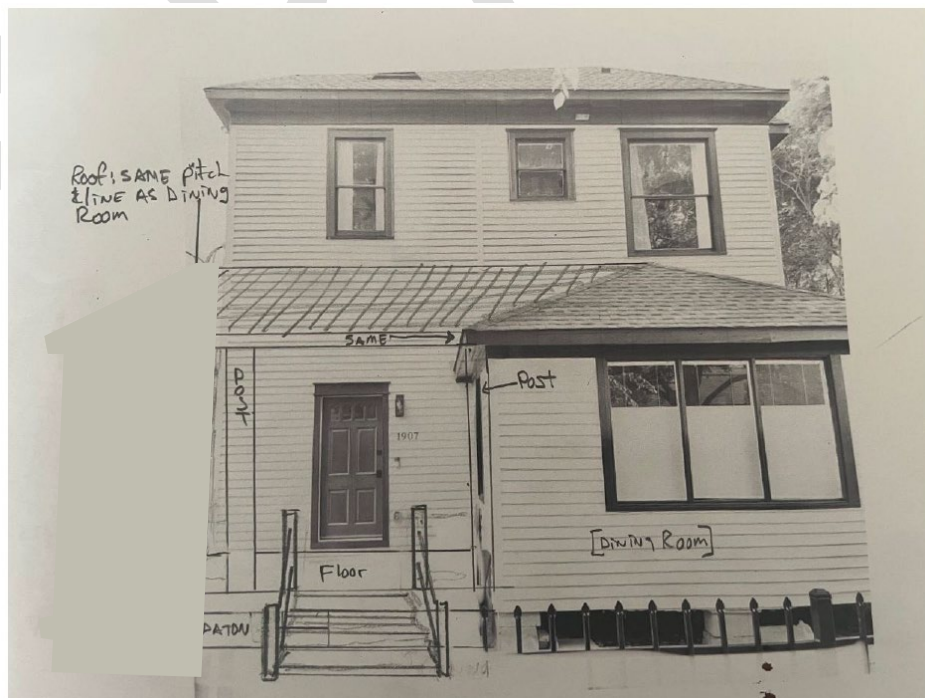 Roof: SAME pitch
& LINE AS DINING
ROOM
SAME
POST
Post
1907
[DINING ROOM]
Floor
DATON